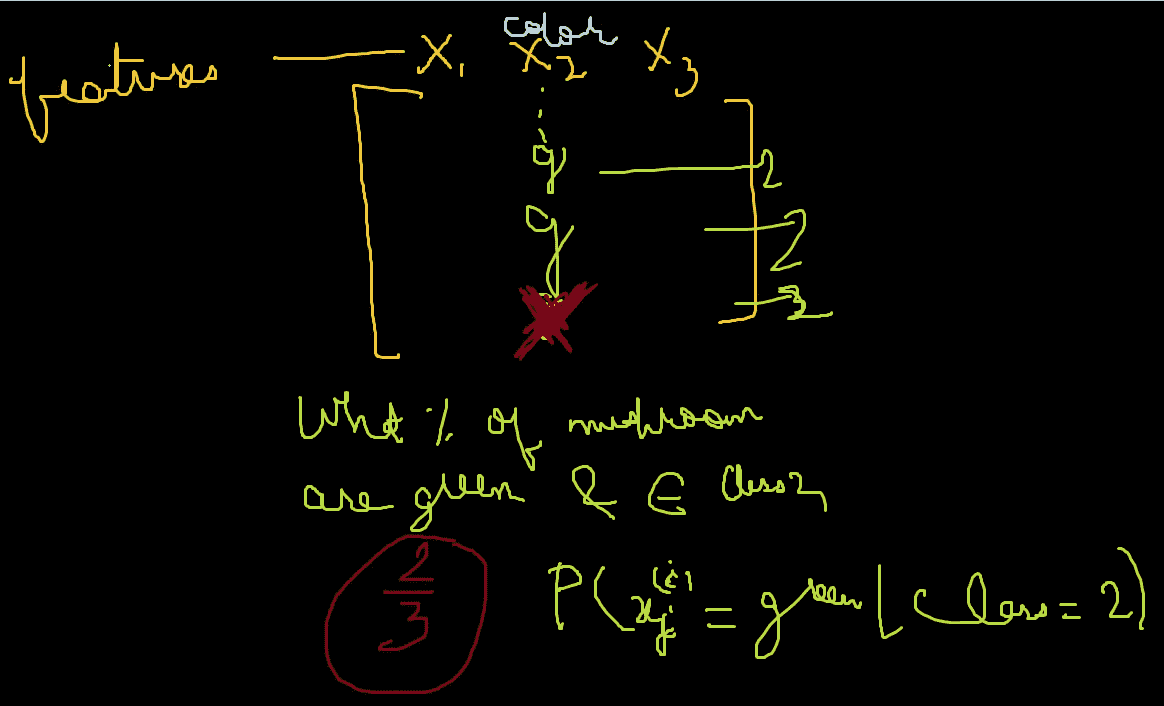 color
features X₁ X₂ X₃
g 2
g 2
2
What % of mushroom
are green & ∈ Class 2
2/3 P(x_j^(i) = green | Class = 2)